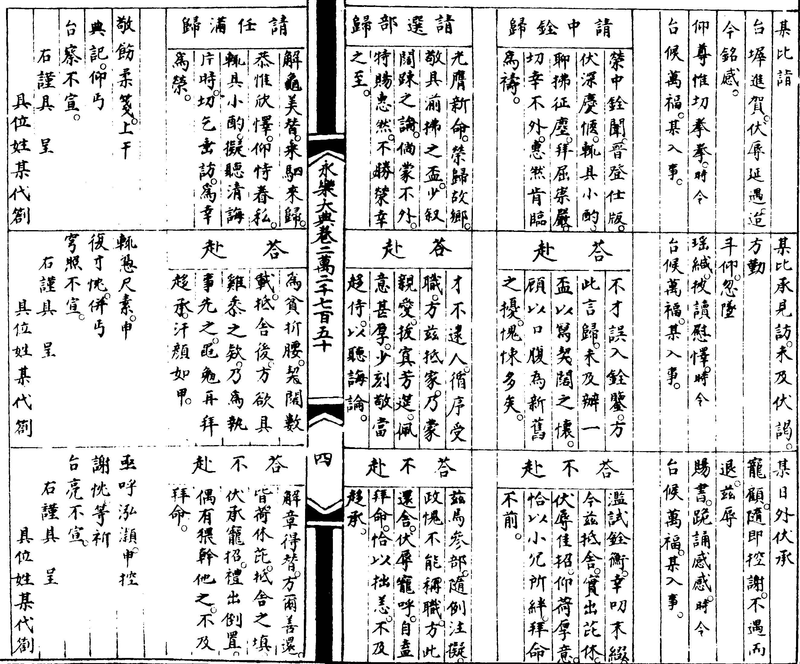 某比請
台墀進賀。伏辱延遇造
今銘感。
仰尊惟切拳拳。時令
台候萬福。某入事。
請中銓歸
榮中銓聞晉登仕版。
伏深慶愜。輒具小酌
聊拂征塵。拜屈崇嚴。
切幸不外。惠然肯臨
為禱。
請選部歸
光膺新命。榮歸故鄉。
敬具前拂之盃。少叙
闊踈之論。倘蒙不外。
特賜惠然。不勝榮幸
之至。
請任滿歸
解龜美替。来馹来歸。
恭惟欣懌。仰恃眷私。
輒具小酌。擬聽清誨
片時。切乞垂訪。為幸
為榮。
敬飭柔箋。上干
典記。仰丐
台察不宣。
右謹具 呈
具位姓某代劄
永樂大典卷二萬二千七百五十
四
某比承見訪。未及伏謁。
方勤
斗仰。忽墜
瑶緘。披讀慰懌。時令
台候萬福。某入事。
答赴
不才誤入銓鑒。方
此言歸。未及辦一
盃以寫契闊之懷。
顧以口腹為新舊
之擾。愧悚多矣。
答赴
才不逮人。循序受
職。方兹抵家。乃蒙
親愛。拔寘芳筵。佩
意甚厚。少刻敬當
趍侍以聽誨論。
答赴
為貧折腰。契闊數
載。抵舍後。方欲具
雞黍之欵。乃為執
事先之。黽勉再拜
趍承。汗顔如甲。
輒憑尺素。申
復寸忱。併丐
穹照不宣。
右謹具 呈
具位姓某代劄
某日外伏承
寵顧。隨即控謝。不遇而
退。兹辱
賜書。跪誦感感。時令
台候萬福。某入事。
答不赴
濫試銓衡。幸叨末綴
今兹抵舍。實出芘休
伏辱佳招。仰荷厚意。
恰以小児所絆。拜命
不前。
答不赴
兹焉參部。隨例注擬。
政愧不能稱職。方此
還舍。伏辱寵呼。自盍
拜命。恰以拙恙。不及
趍承。
答不赴
解章得替。方爾善還。
皆荷休芘。抵舍之填
伏承寵招。禮出倒置。
偶有猥幹他之。不及
拜命。
亟呼泓潁。申控
謝忱。等祈
台亮不宣。
右謹具 呈
具位姓某代劄